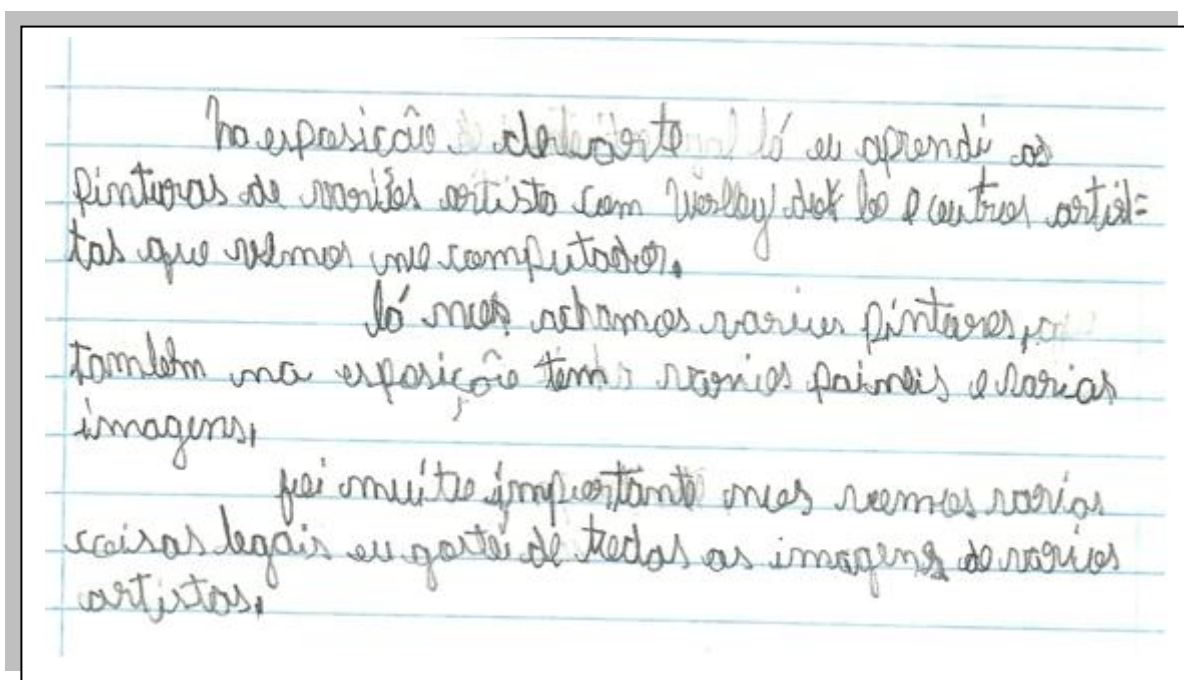 na esposicão de arte lá eu aprendi as
pinturas de varios artista com Wesley e outros artis=
tas que vemos no computador.
lá nos achamos varios pintores,
tamlém na esposição tem varios paineis e varias
imagens,
foi muito importante nos vemos varias
coisas legais eu gostei de todas as imagens de varios
artistas.